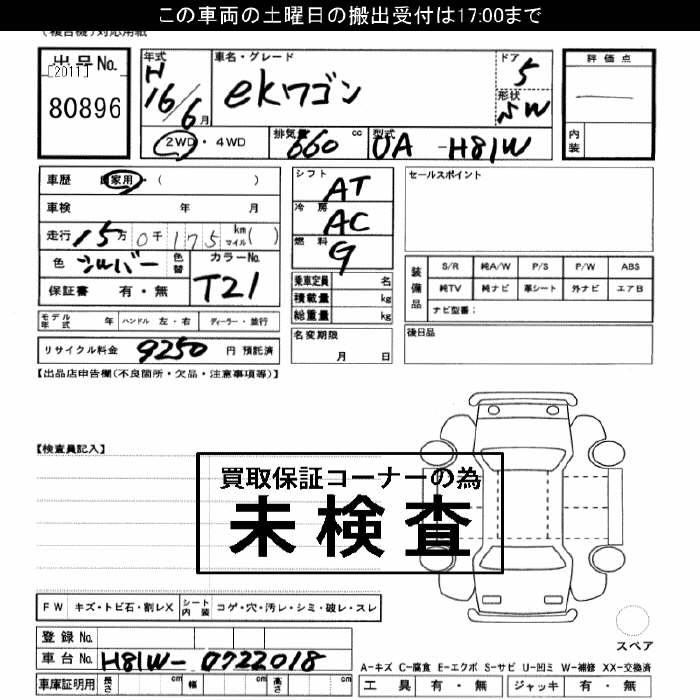 この車両の土曜日の搬出受付は17:00まで
(複合機)対応用紙
出品No.
[2011]
80896
年式
H
16/6月
車名・グレード
ekワゴン
ドア
5
形状
SW
評価点
内装
2WD・4WD
排気量
660 cc
型式
UA -H81W
車歴 自家用・( )
車検 年 月
走行 15万0千175 km マイル( )
色 シルバー 色替
カラーNo.
T21
保証書 有・無
モデル年式 年 ハンドル 左・右 ディーラー・並行
リサイクル料金 9250 円 預託済
シフト
AT
冷房
AC
燃料
G
乗車定員 名
積載量 kg
総重量 kg
名変期限
月 日
セールスポイント
装備品
S/R 純A/W P/S P/W ABS
純TV 純ナビ 革シート 外ナビ エアB
ナビ型番:
後日品
【出品店申告欄(不良箇所・欠品・注意事項等)】
【検査員記入】
買取保証コーナーの為
未検査
FW キズ・トビ石・割レX シート内装 コゲ・穴・汚レ・シミ・破レ・スレ
スペア
登録No.
車台No. H81W-0722018
車庫証明用 長さ cm 幅 cm 高さ cm
A-キズ C-腐食 E-エクボ S-サビ U-凹ミ W-補修 XX-交換済
工具 有・無 ジャッキ 有・無